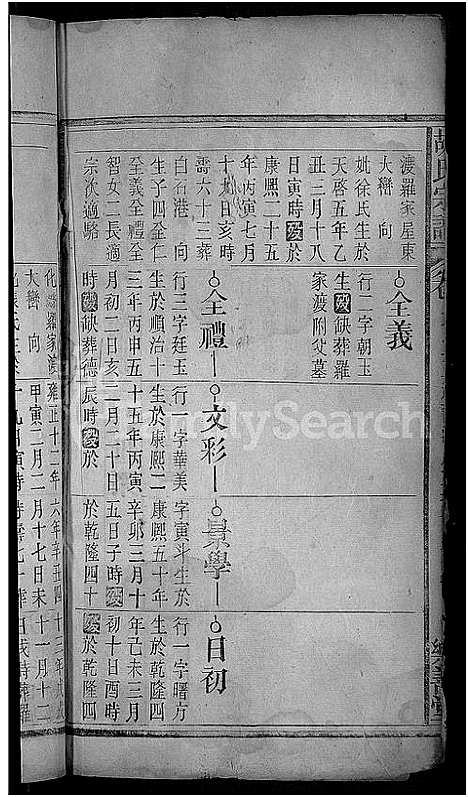 渡羅家屋東
大巒向
妣徐氏生於
天啓五年乙
丑三月十八
日寅時歿於
康熙二十五
年丙寅七月
十九日亥時
壽六十三葬
白石港向
生子四全仁
至義全禮全
智女二長適
宗次適駱
全義
行一字朝玉
生歿缺葬羅
家渡附父墓
全禮
行三字廷玉
生於順治十
三年丙申五
月初二日亥
時歿缺葬德
文彩
行一字華美
生於康熙二
十五年丙寅
二月二十日
辰時歿於
景學
字寅斗生於
康熙五十年
辛卯三月十
五日子時歿
於乾隆四十
日初
行一字曙方
生於乾隆四
年己未三月
初十日酉時
歿於乾隆四
大巒向
甲寅二月二月十七日未十一月十二
FamilySearch